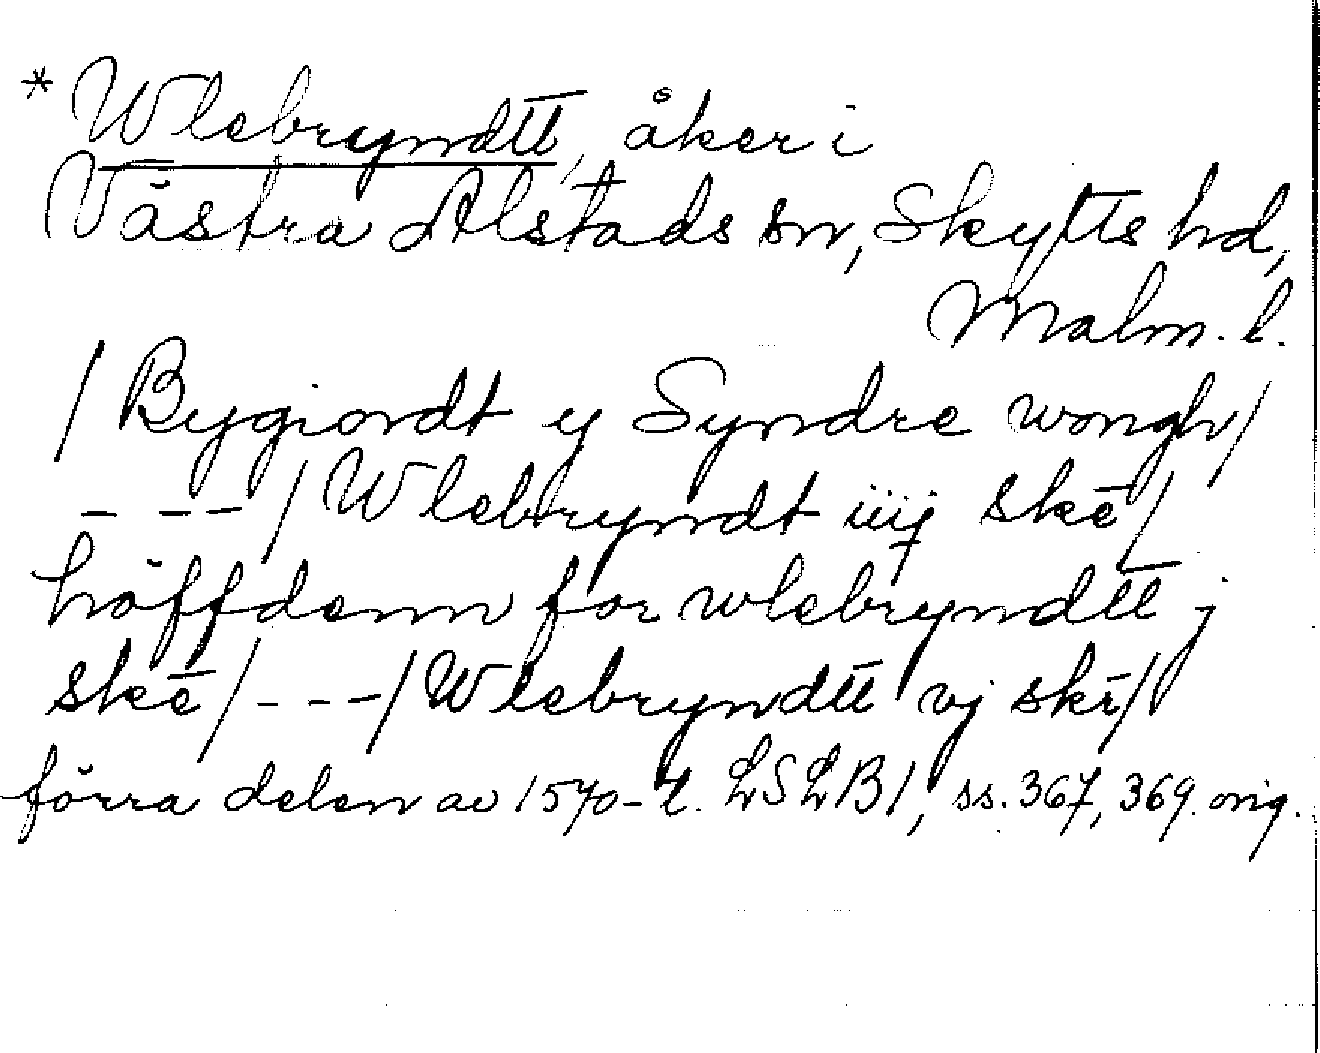 * Wlebryndtt, åker i
Västra Alstads sn, Skytts hd,
Malm. l.
/ Bygiordt y Syndre wongh/
- - - / Wlebryndt iiij skē/
höffdenn for wlebryndtt j
skē/ - - - / Wlebryndtt vj skē/
förra delen av 1570-t. LSLB1, ss. 367, 369. orig.